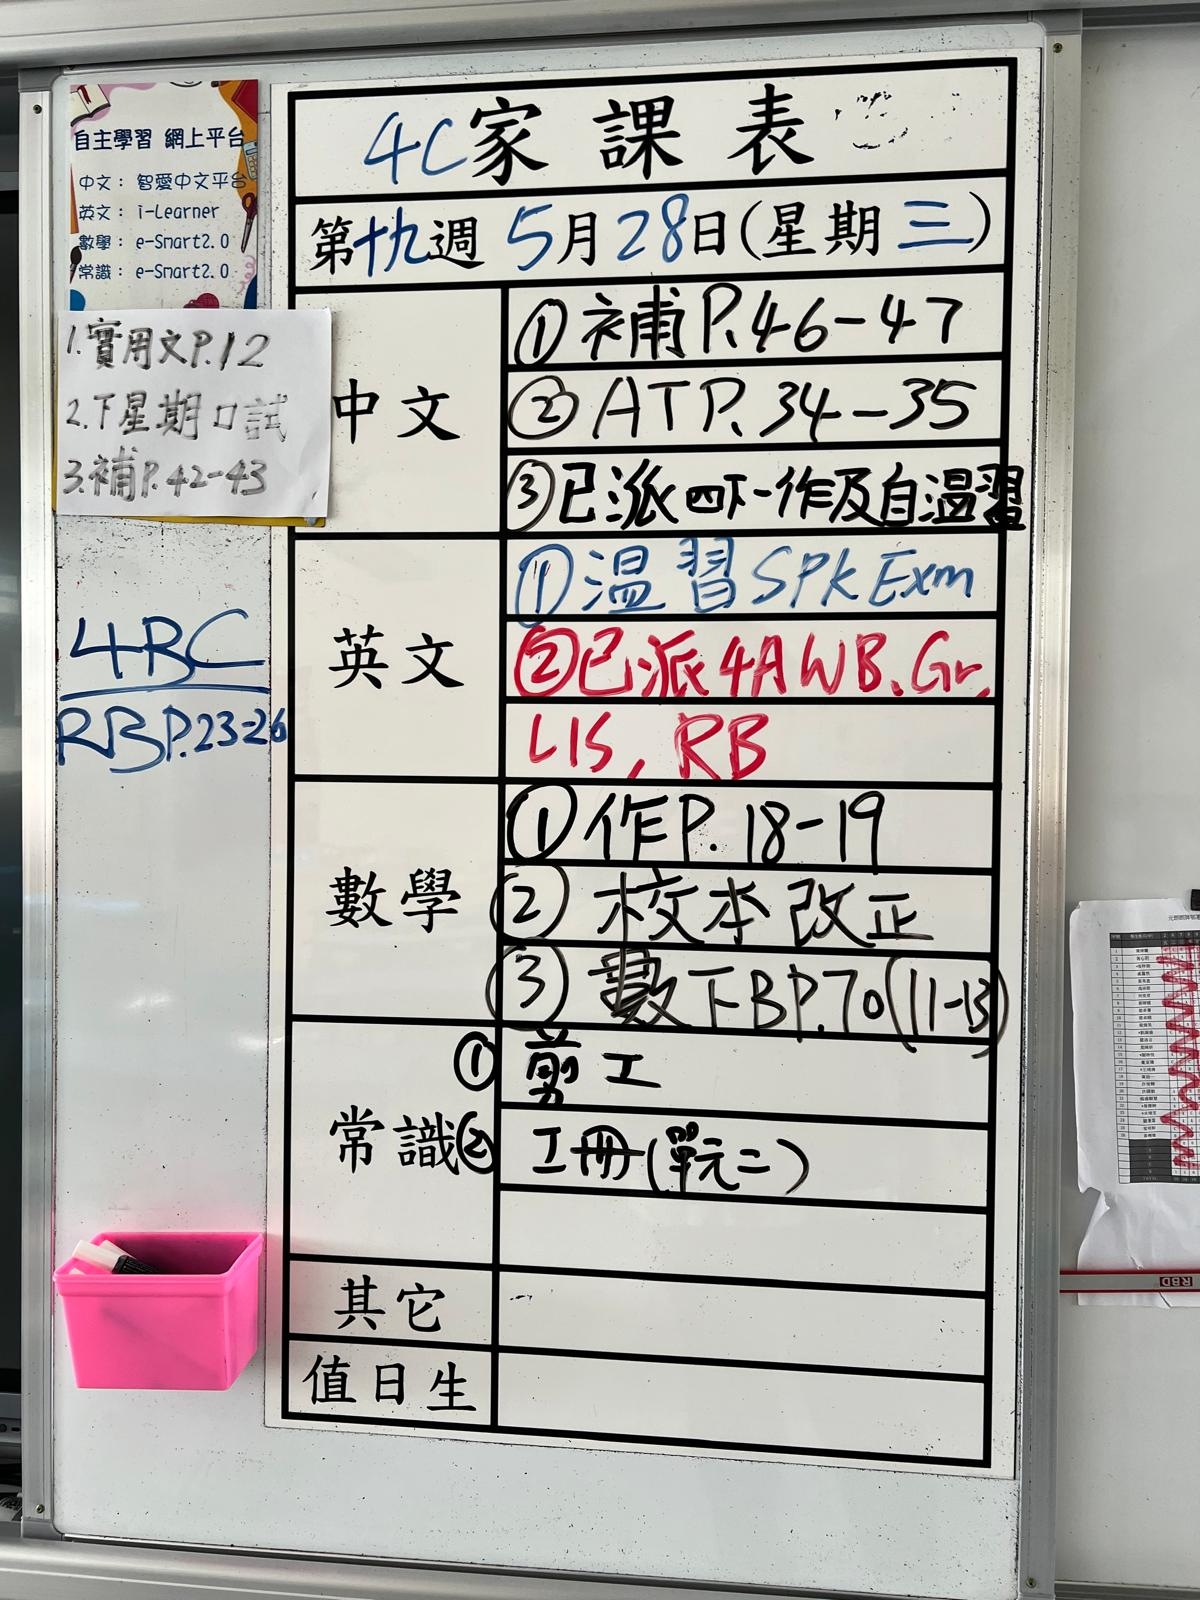 自主學習 網上平台
中文： 智愛中文平台
英文： i-Learner
數學： e-Smart2.0
常識： e-Smart2.0
1.實用文P.12
2.下星期口試
3.補P.42-43
4BC
RBP.23-26
4C家課表
第十九週 5月28日(星期三)
中文
①補P.46-47
②ATP.34-35
③已派四下一作及自溫習
英文
①温習SPK Exm
②已派4AWB.Gr,
LIS, RB
數學
①作P.18-19
②校本改正
③數下BP.70(11-13)
常識
①剪工
②工冊(單元二)
其它
值日生
RBD